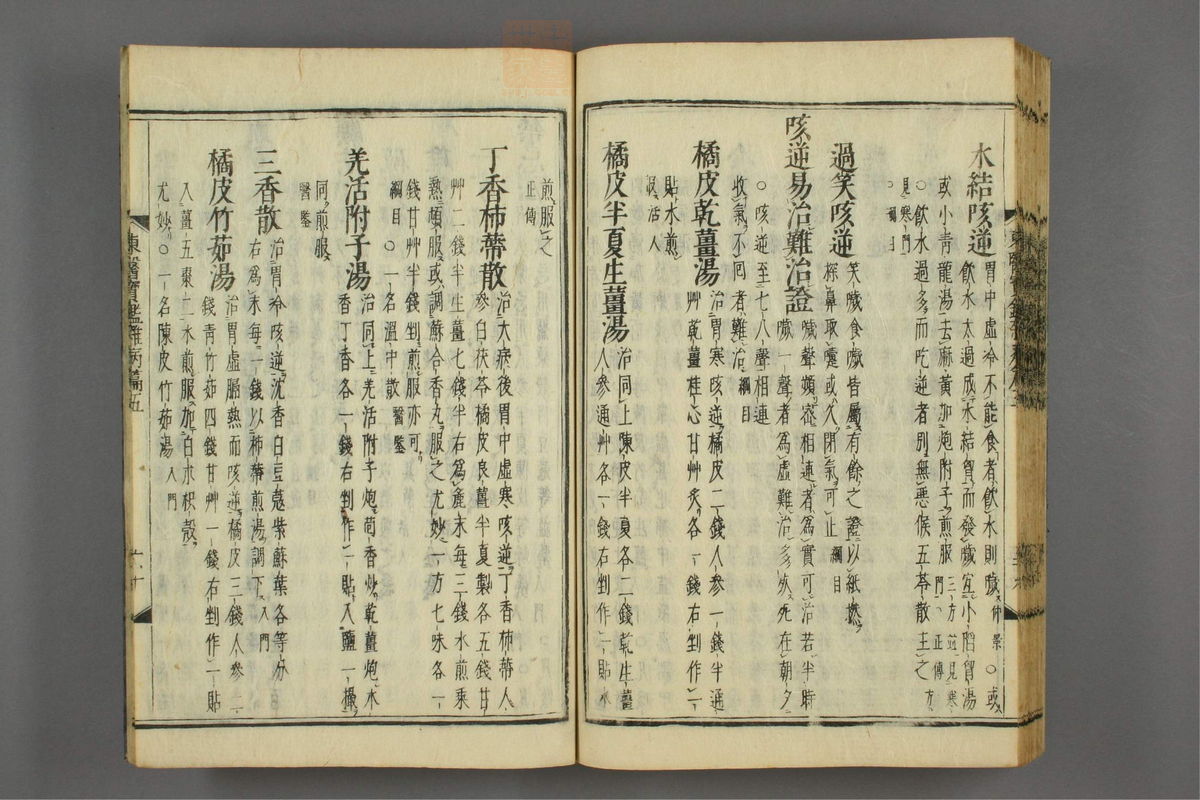 水結咳逆
胃中虛冷不能食者飮水則咳仲景○或
飮水太過成水結胷而發噦宜小陷胷湯
或小靑龍湯去麻黃加炮附子煎服三方並見寒門○正傳
○飮水過多而吃逆者別無惡候五苓散主之方見寒門
○綱目
過笑咳逆
笑噦食噦皆屬有餘之證以紙撚
探鼻取嚔或久閉氣可止綱目
咳逆易治難治證
噦聲頻密相連者爲實可治若半時
噦一聲者爲虛難治多死死在朝夕
○咳逆至七八聲相連
收氣不回者難治綱目
橘皮乾薑湯
治胃寒咳逆橘皮二錢人參一錢半通
艸乾薑桂心甘艸炙各一錢右剉作一
貼水煎
服活人
橘皮半夏生薑湯
治同上陳皮半夏各二錢乾生薑
人參通艸各一錢右剉作一貼水
煎服之
正傳
丁香柿蔕散
治大病後胃中虛寒咳逆丁香柿蔕人
參白茯苓橘皮良薑半夏製各五錢甘
艸二錢半生薑七錢半右爲麁末每三錢水煎乘
熱頓服或調蘇合香丸服之尤妙一方七味各一
錢甘艸半錢剉煎服亦可
綱目○一名溫中散醫鑒
羌活附子湯
治同上羌活附子炮茴香炒乾薑炮木
香丁香各一錢右剉作一貼入鹽一撮
同煎服
醫鑒
三香散
治胃冷咳逆沈香白豆蔲紫蘇葉各等分
右爲末每一錢以柿蔕煎湯調下入門
橘皮竹茹湯
治胃虛膈熱而咳逆橘皮三錢人參二
錢靑竹茹四錢甘艸一錢右剉作一貼
入薑五棗二水煎服加白朮枳殼
尤妙○一名陳皮竹茹湯入門
東醫寶鑑雜病篇五